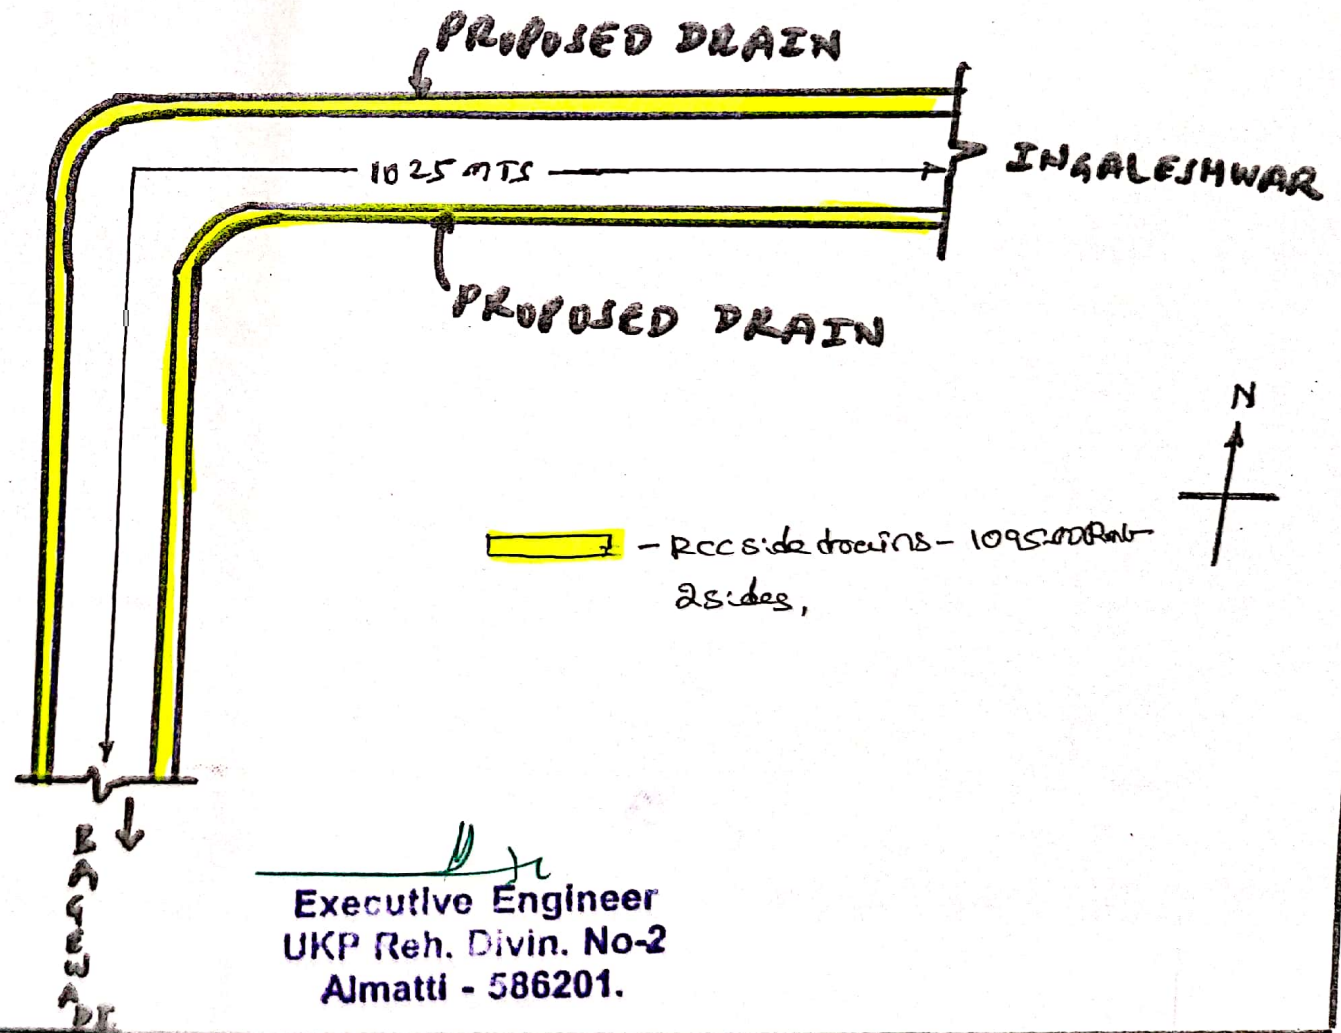 PROPOSED DRAIN
1025 MTS
INGALESHWAR
PROPOSED DRAIN
N
- RCC side drains -
2 sides,
BAGEWADI
Executive Engineer
UKP Reh. Divin. No-2
Almatti - 586201.